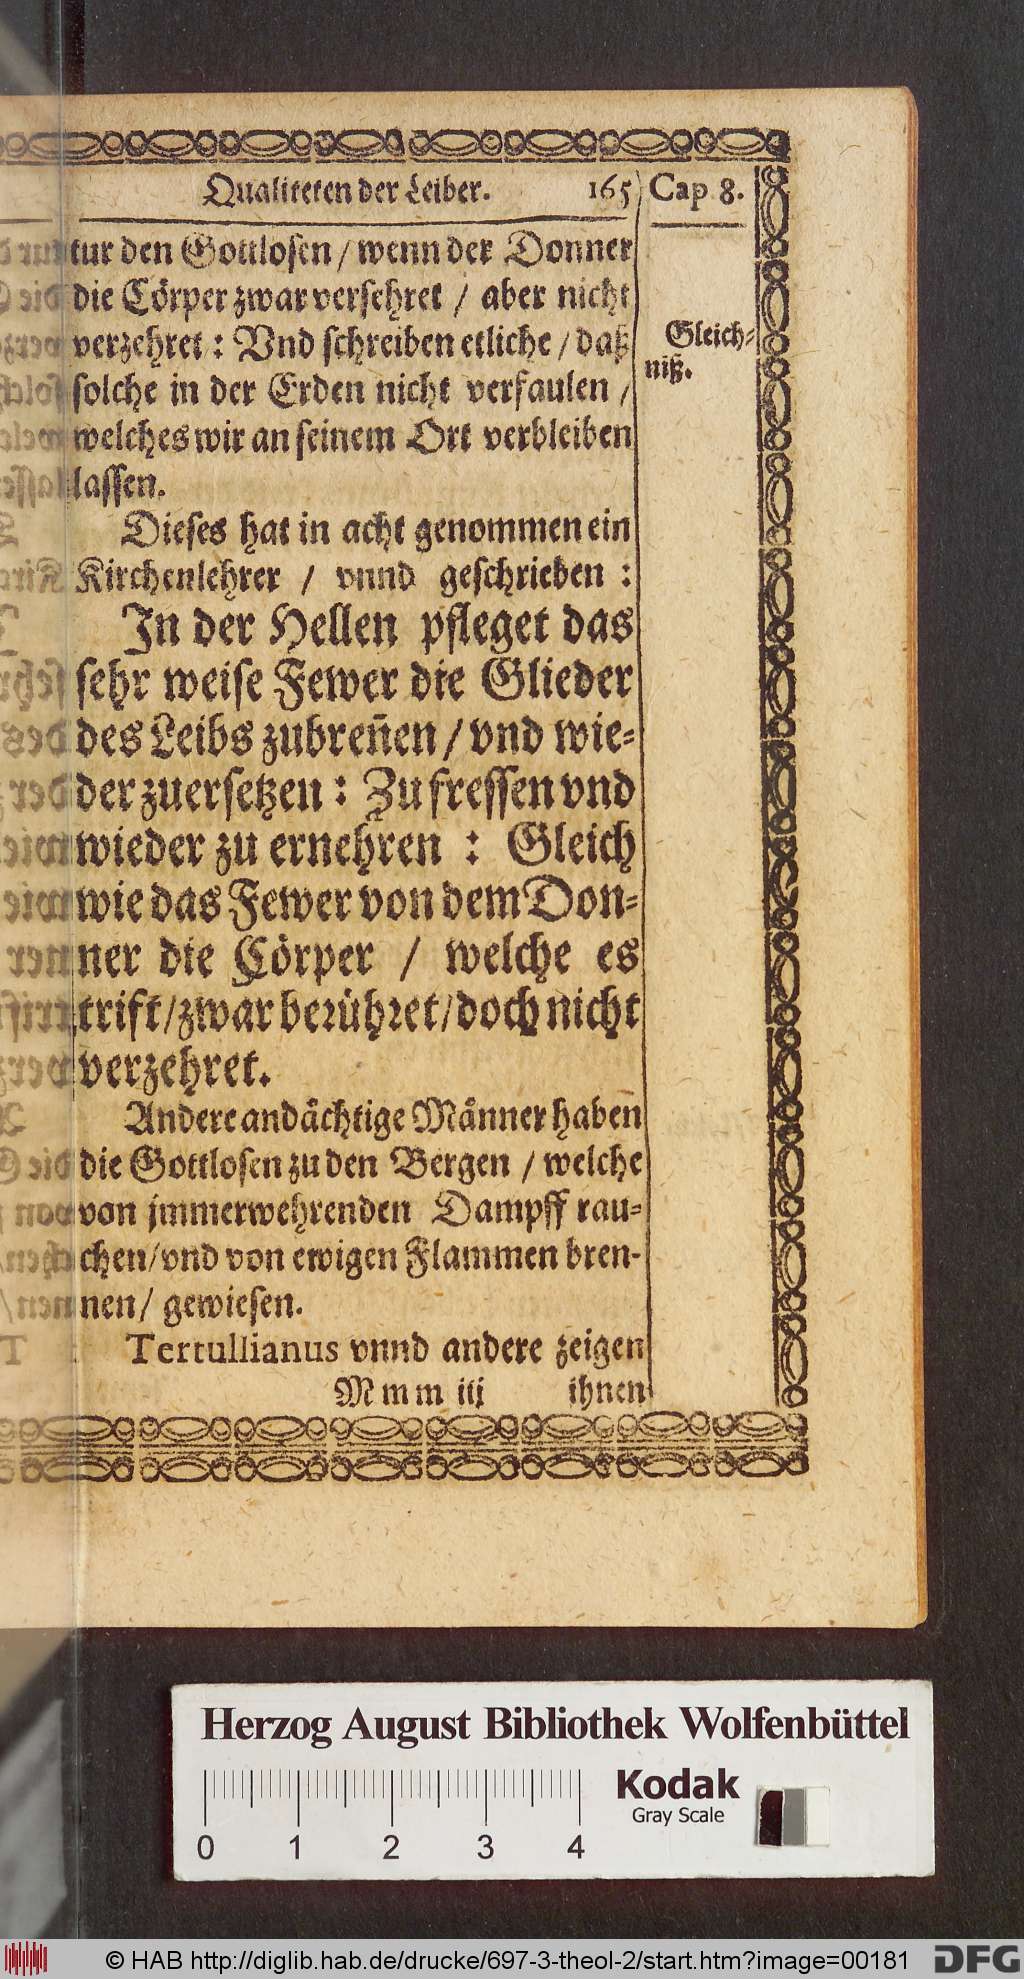 Qualiteten der Leiber. 165 Cap 8.
tur den Gottlosen / wenn der Donner
die Cörper zwar versehret / aber nicht
verzehret : Vnd schreiben etliche / daß
solche in der Erden nicht verfaulen /
welches wir an seinem Ort verbleiben
lassen.
Gleich-
niß.
Dieses hat in acht genommen ein
Kirchenlehrer / vnnd geschrieben :
In der Hellen pfleget das
sehr weise Fewer die Glieder
des Leibs zubreñen / vnd wie-
der zuersetzen : Zu fressen vnd
wieder zu ernehren : Gleich
wie das Fewer von dem Don-
ner die Cörper / welche es
trift / zwar berühret / doch nicht
verzehret.
Andere andächtige Männer haben
die Gottlosen zu den Bergen / welche
von jmmerwehrenden Dampff rau-
chen / vnd von ewigen Flammen bren-
nen / gewiesen.
Tertullianus vnnd andere zeigen
Mmm iij ihnen
Herzog August Bibliothek Wolfenbüttel
Kodak
Gray Scale
0 1 2 3 4
© HAB http://diglib.hab.de/drucke/697-3-theol-2/start.htm?image=00181 DFG